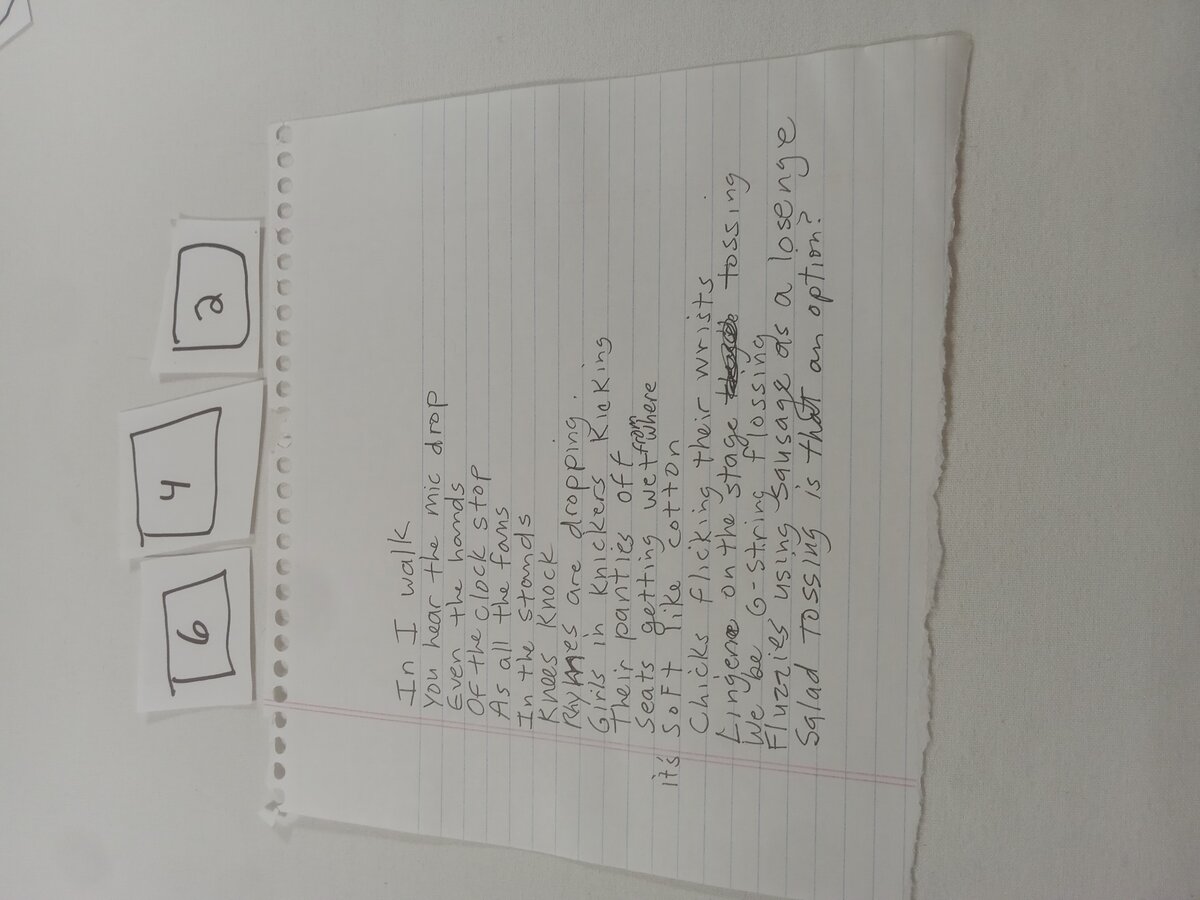 6 4 2
In I walk
you hear the mic drop
Even the hands
Of the clock stop
As all the fans
In the stands
Knees Knock
Rhymes are dropping.
Girls in Knickers Kicking
Their panties off
Seats getting wet from where
it's soft like cotton
Chicks flicking their wrists
Lingere on the stage tossing
We be G-string flossing
Fluzzies using sausage as a losenge
Salad Tossing is that an option?